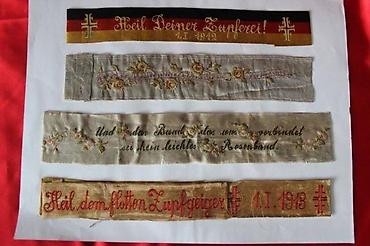 Heil Deiner Zupferei!
1.I.1912
Und den Bund, den uns verbindet
sei kein leichtes Rosenband.
Heil dem flotten Zupfgeiger 1.I.1913